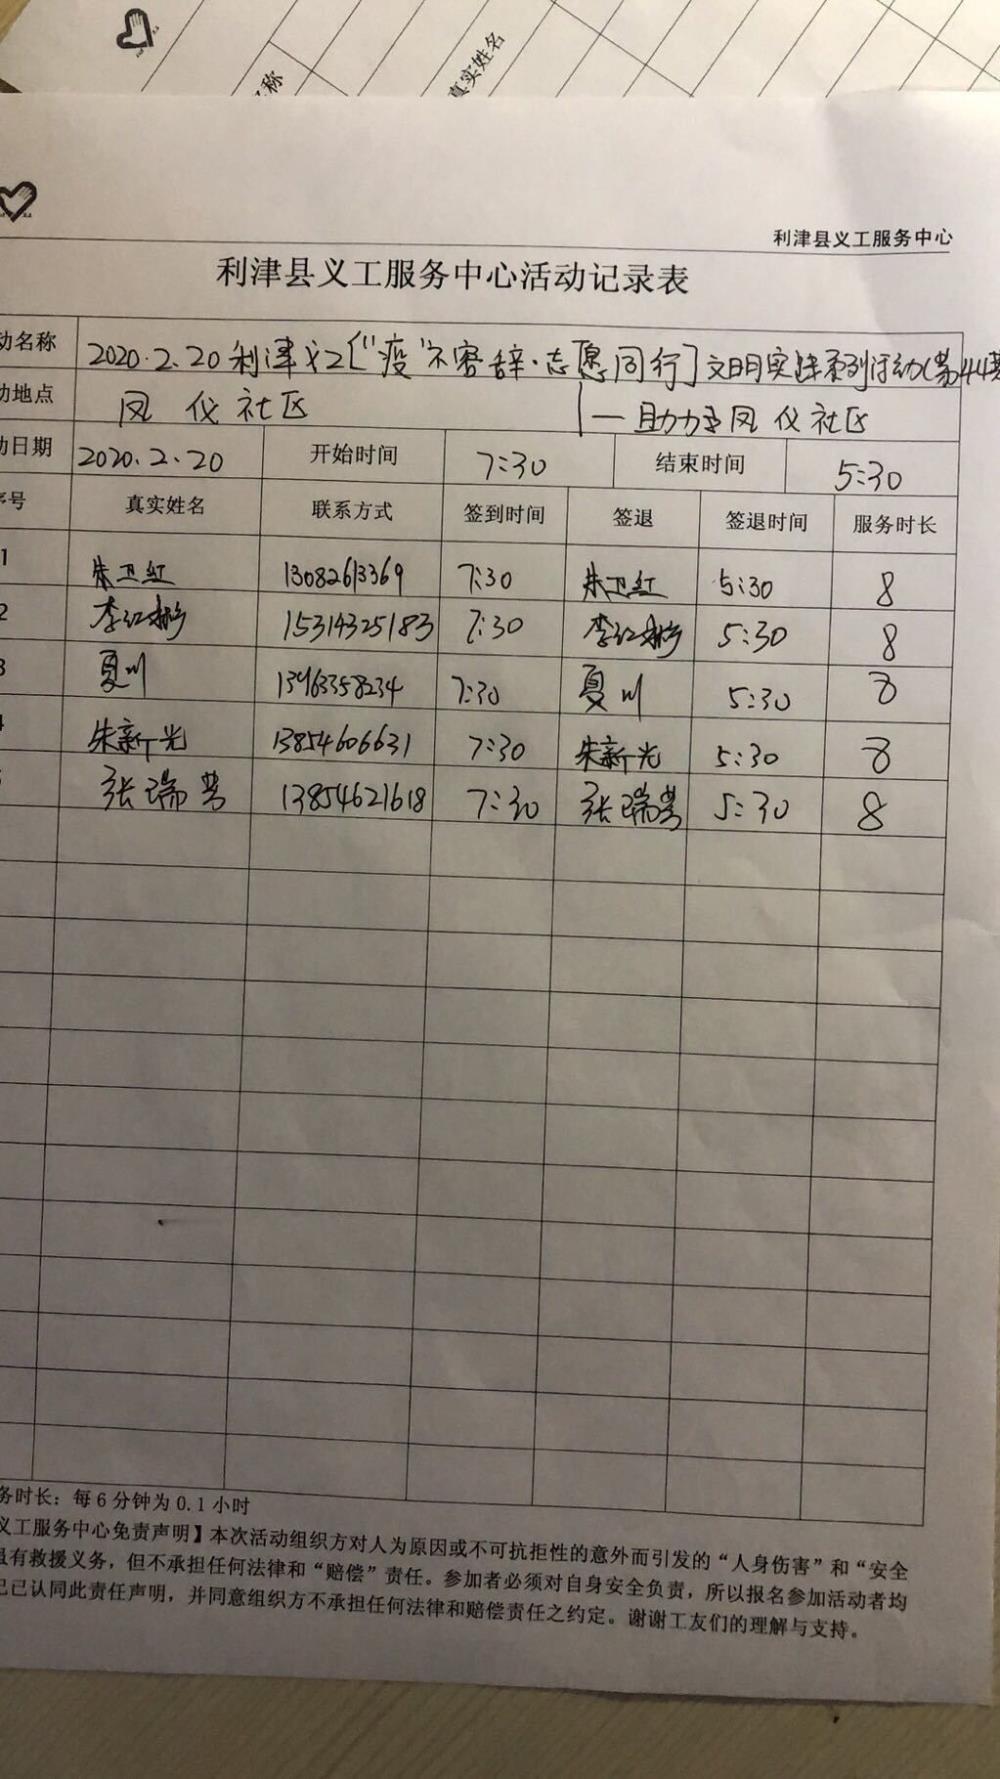 真实姓名
利津县义工服务中心
利津县义工服务中心活动记录表
动名称 2020.2.20利津义工[“疫”不容辞·志愿同行]文明实践系列活动(第44
动地点 凤仪社区 |—助力凤仪社区
动日期 2020.2.20 开始时间 7:30 结束时间 5:30
序号 真实姓名 联系方式 签到时间 签退 签退时间 服务时长
1 朱卫红 13082613369 7:30 朱卫红 5:30 8
2 李红彬 15314325183 7:30 李红彬 5:30 8
3 夏川 13963358234 7:30 夏川 5:30 8
朱新光 13854606631 7:30 朱新光 5:30 8
张瑞芳 13854621618 7:30 张瑞芳 5:30 8
务时长：每6分钟为0.1小时
义工服务中心免责声明】本次活动组织方对人为原因或不可抗拒性的意外而引发的“人身伤害”和“安全
虽有救援义务，但不承担任何法律和“赔偿”责任。参加者必须对自身安全负责，所以报名参加活动者均
已认同此责任声明，并同意组织方不承担任何法律和赔偿责任之约定。谢谢工友们的理解与支持。